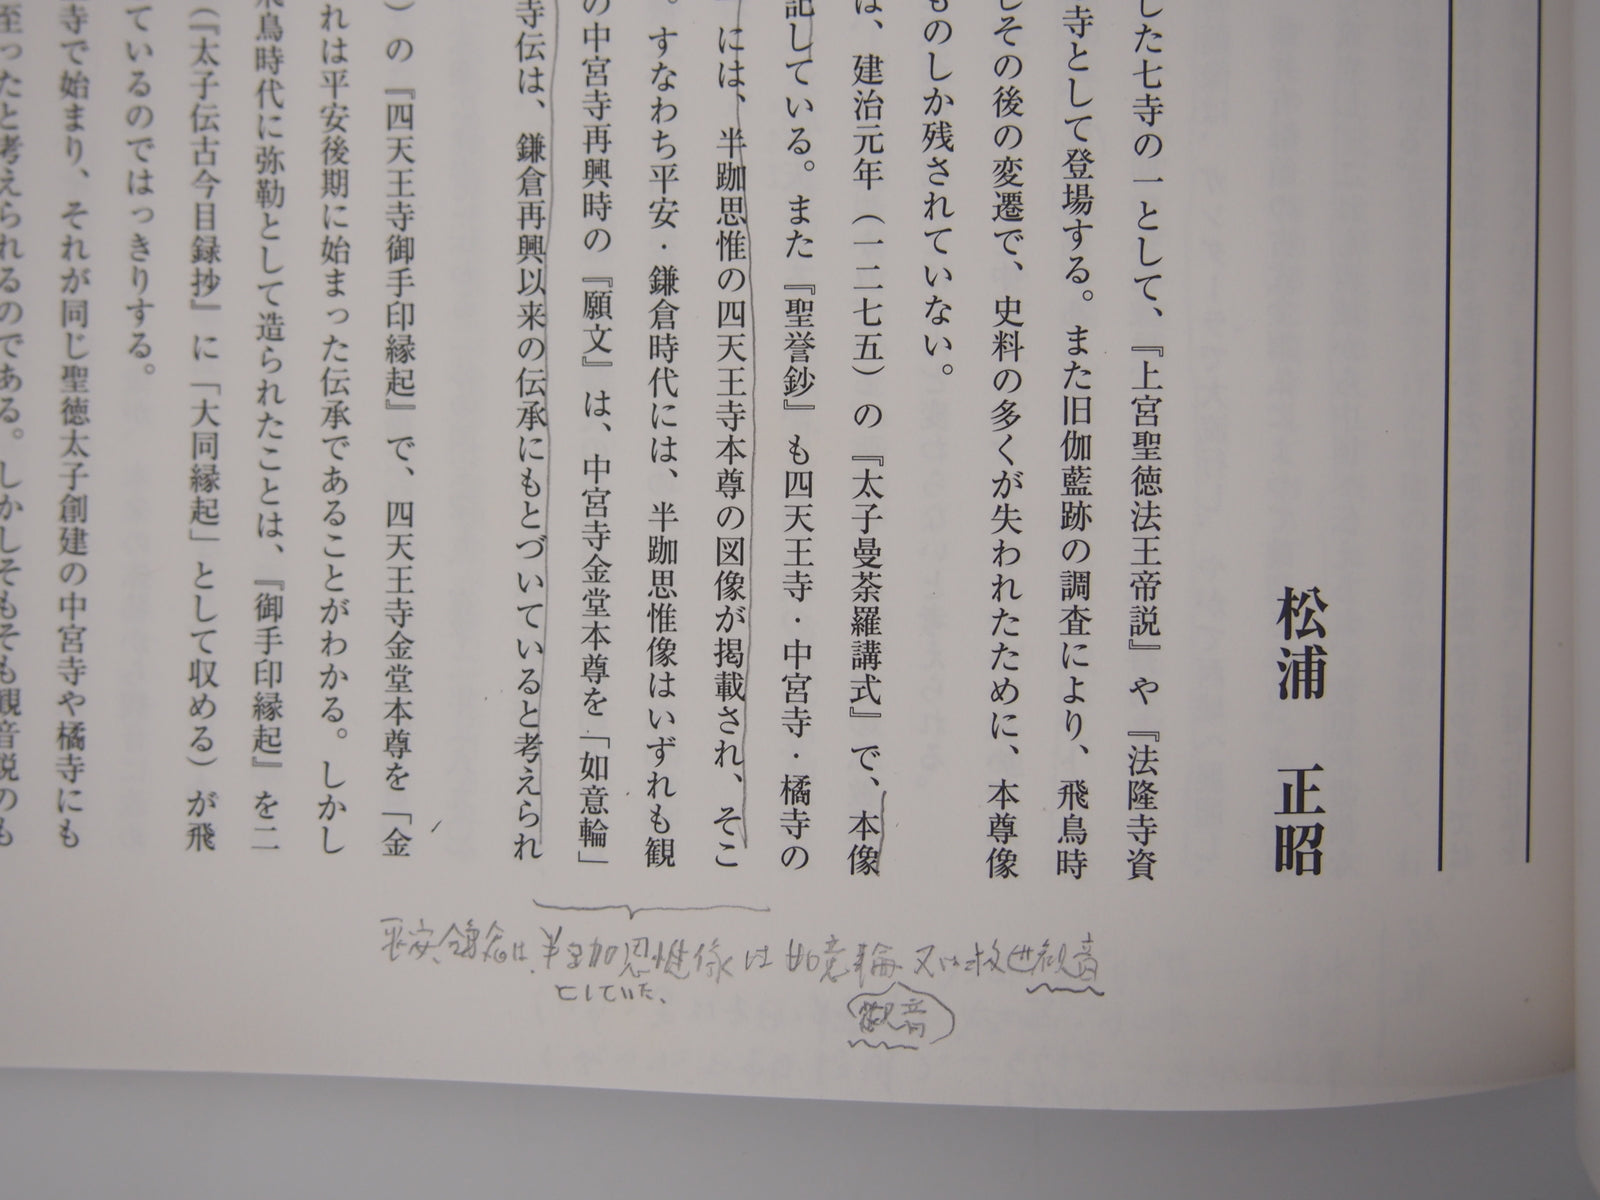 松浦 正昭
した七寺の一として、『上宮聖徳法王帝説』や『法隆寺資
寺として登場する。また旧伽藍跡の調査により、飛鳥時
しその後の変遷で、史料の多くが失われたために、本尊像
ものしか残されていない。
は、建治元年（一二七五）の『太子曼荼羅講式』で、本像
記している。また『聖誉鈔』も四天王寺・中宮寺・橘寺の
には、半跏思惟の四天王寺本尊の図像が掲載され、そこ
。すなわち平安・鎌倉時代には、半跏思惟像はいずれも観
の中宮寺再興時の『願文』は、中宮寺金堂本尊を「如意輪」
寺伝は、鎌倉再興以来の伝承にもとづいていると考えられ
）の『四天王寺御手印縁起』で、四天王寺金堂本尊を「金
れは平安後期に始まった伝承であることがわかる。しかし
飛鳥時代に弥勒として造られたことは、『御手印縁起』を二
（『太子伝古今目録抄』に「大同縁起」として収める）が飛
ているのではっきりする。
寺で始まり、それが同じ聖徳太子創建の中宮寺や橘寺にも
至ったと考えられるのである。しかしそもそも観音説のも
平安、鎌倉は、半跏思惟像は如意輪又は救世観音
としていた、
観音